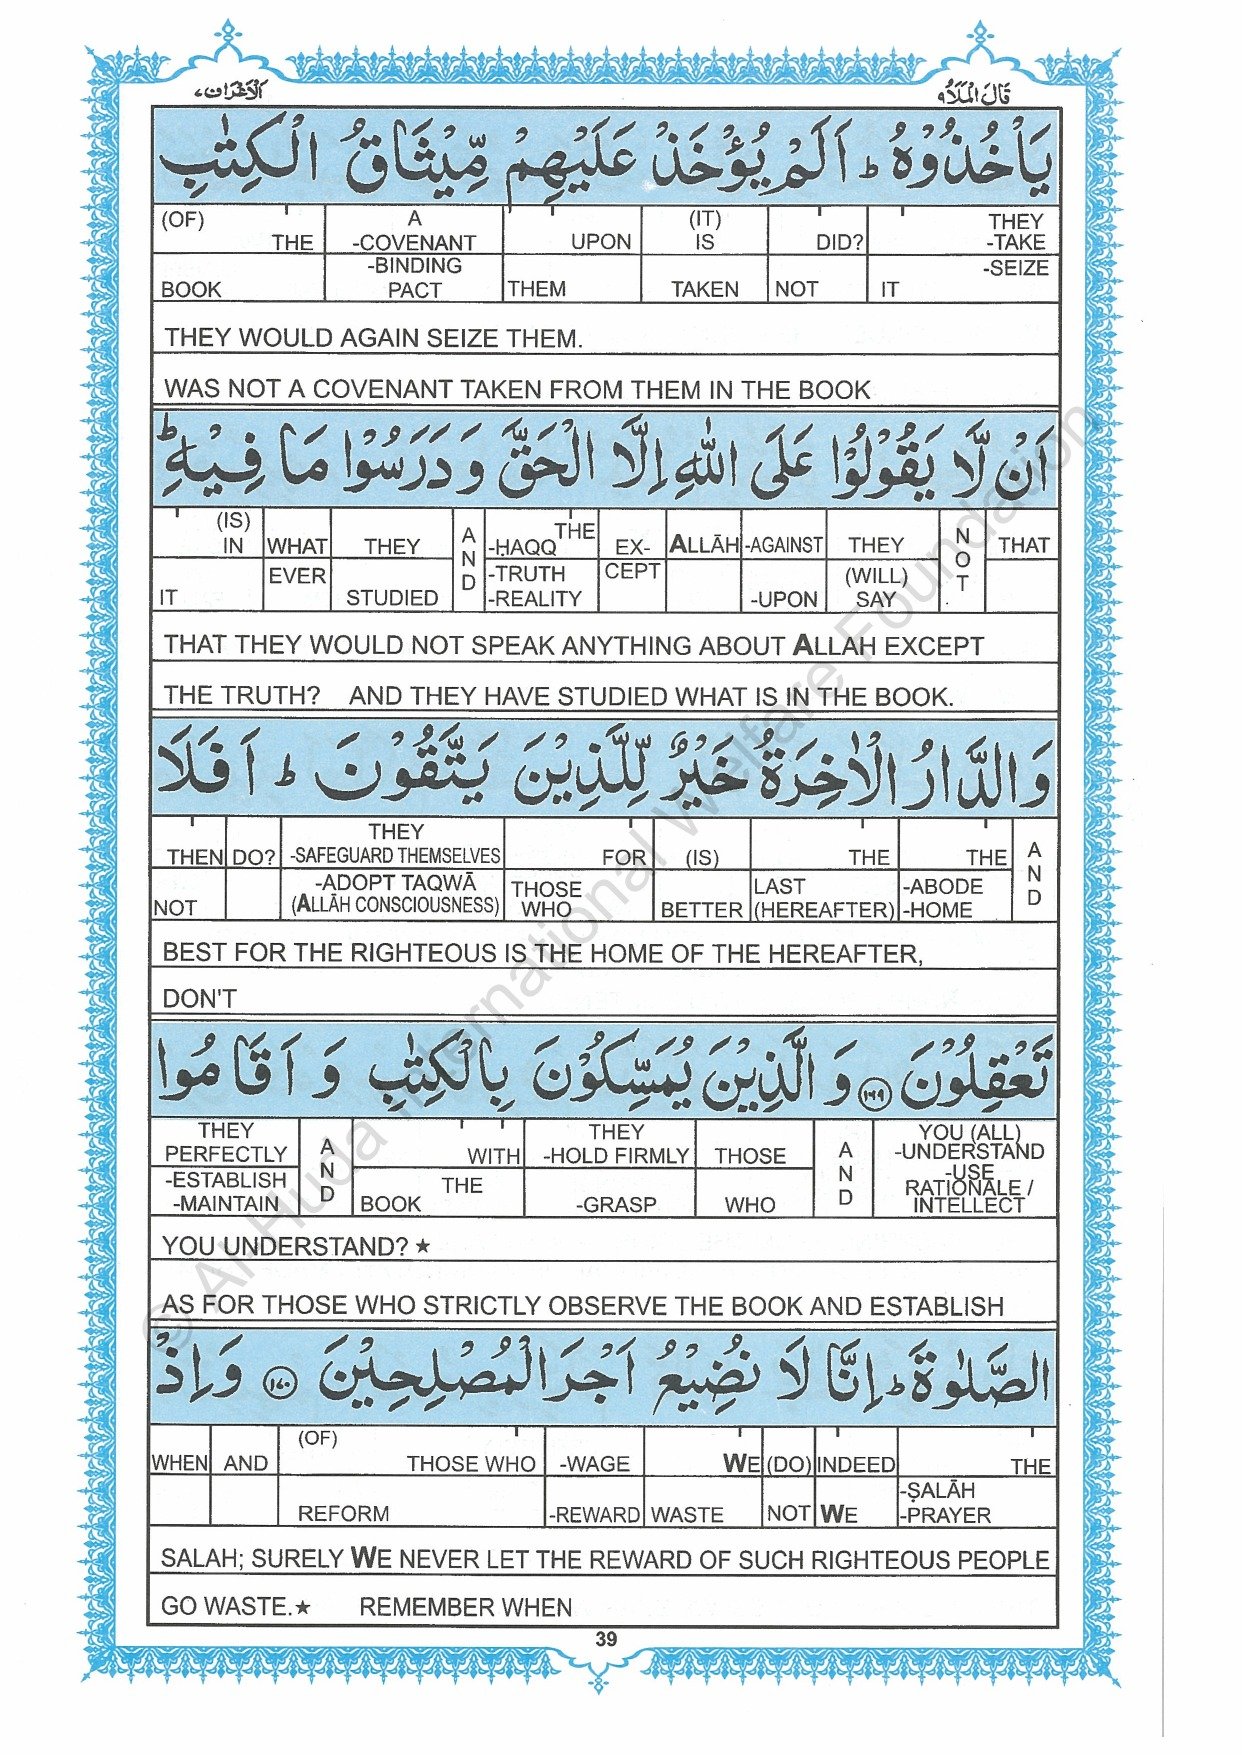 الاعراف ٧ قَالَ الْمَلَاُ ٩
يَاْخُذُوْهُ ؕ اَلَمْ يُؤْخَذْ عَلَيْهِمْ مِّيْثَاقُ الْكِتٰبِ
(OF) THE BOOK | A -COVENANT -BINDING PACT | UPON THEM | (IT) IS TAKEN | DID? NOT | THEY -TAKE -SEIZE IT
THEY WOULD AGAIN SEIZE THEM.
WAS NOT A COVENANT TAKEN FROM THEM IN THE BOOK
اَنْ لَّا يَقُوْلُوْا عَلَى اللّٰهِ اِلَّا الْحَقَّ وَ دَرَسُوْا مَا فِيْهِ ؕ
(IS) IN IT | WHAT EVER | THEY STUDIED | AND | THE -ḤAQQ -TRUTH -REALITY | EX- CEPT | ALLĀH | -AGAINST -UPON | THEY (WILL) SAY | NOT | THAT
THAT THEY WOULD NOT SPEAK ANYTHING ABOUT ALLAH EXCEPT
THE TRUTH? AND THEY HAVE STUDIED WHAT IS IN THE BOOK.
وَ الدَّارُ الْاٰخِرَةُ خَيْرٌ لِّلَّذِيْنَ يَتَّقُوْنَ ؕ اَفَلَا
THEN NOT | DO? | THEY -SAFEGUARD THEMSELVES -ADOPT TAQWĀ (ALLĀH CONSCIOUSNESS) | FOR THOSE WHO | (IS) BETTER | THE LAST (HEREAFTER) | THE -ABODE -HOME | AND
BEST FOR THE RIGHTEOUS IS THE HOME OF THE HEREAFTER,
DON'T
تَعْقِلُوْنَ ١٦٩ وَ الَّذِيْنَ يُمَسِّكُوْنَ بِالْكِتٰبِ وَ اَقَامُوا
THEY PERFECTLY -ESTABLISH -MAINTAIN | AND | WITH THE BOOK | THEY -HOLD FIRMLY -GRASP | THOSE WHO | AND | YOU (ALL) -UNDERSTAND -USE RATIONALE / INTELLECT
YOU UNDERSTAND? ★
AS FOR THOSE WHO STRICTLY OBSERVE THE BOOK AND ESTABLISH
الصَّلٰوةَ ؕ اِنَّا لَا نُضِيْعُ اَجْرَ الْمُصْلِحِيْنَ ١٧٠ وَ اِذْ
WHEN | AND | (OF) THOSE WHO REFORM | -WAGE -REWARD | WE WASTE | (DO) NOT | INDEED WE | THE -ṢALĀH -PRAYER
SALAH; SURELY WE NEVER LET THE REWARD OF SUCH RIGHTEOUS PEOPLE
GO WASTE.★ REMEMBER WHEN
39
© Al-Huda International Welfare Foundation